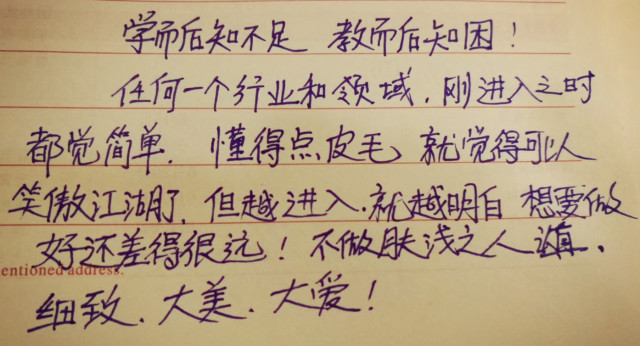 学而后知不足 教而后知困!
任何一个行业和领域,刚进入之时
都觉简单.懂得点皮毛,就觉得可以
笑傲江湖了,但越进入.就越明白 想要做
好还差得很远!不做肤浅之人 真、
entioned address.
细致.大美.大爱!